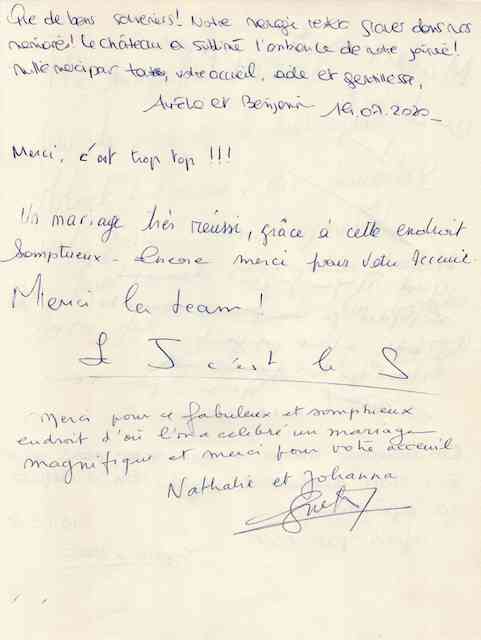 Que de bons souvenirs! Notre mariage restera graver dans nos
mémoires! Le château a sublimé l'ambiance de notre journée!
Mille merci par toutes, votre accueil, aide et gentillesse,
et Benjamin 19.07.2020
Merci, c'est trop top !!!
Un mariage très réussi, grâce à cette endroit
Somptueux - Encore merci pour votre acceuil.
Merci la team!
Le J c'est le S
Merci pour ce fabuleux et somptueux
endroit d'où l'on a celebré un mariage
magnifique et merci pour votre acceuil
Nathalie et Johanna